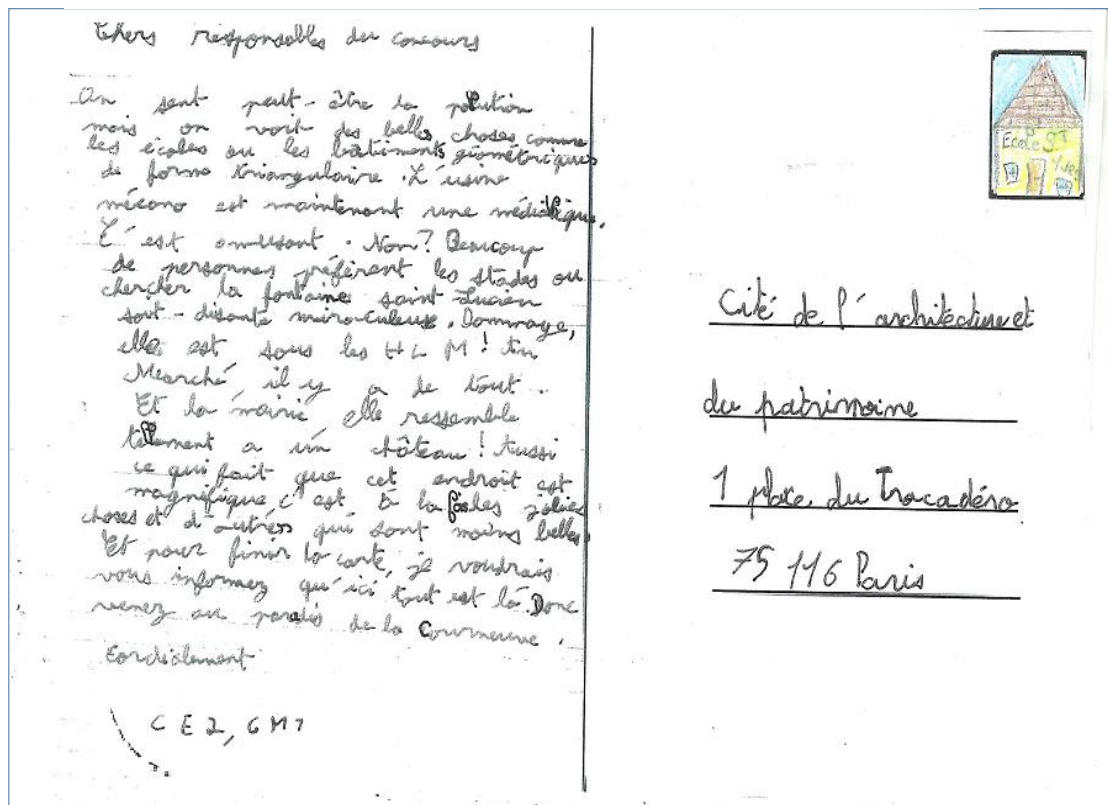 Chers responsables du concours
On sent peut-être la pollution
mais on voit des belles choses comme
les écoles ou les bâtiments géométriques
de forme triangulaire. L'usine
mécano est maintenant une
C'est amusant. Non? Beaucoup
de personnes préfèrent les stades ou
chercher la fontaine saint-Lucien
soit-disante miraculeuse. Dommage,
elle est sous les HLM! Au
Marché, il y a de tout.
Et la mairie, elle ressemble
tellement a un château! Aussi
ce qui fait que cet endroit est
magnifique c'est à la fois les jolies
choses et d'autres qui sont moins belles.
Et pour finir la carte, je voudrais
vous informez qu'ici tout est là. Donc
venez au paradis de la Courneuve.
Cordialement
CE2, CM1
Ecole ST
Yves
Cité de l'architecture et
du patrimoine
1 place du Trocadéro
75 116 Paris